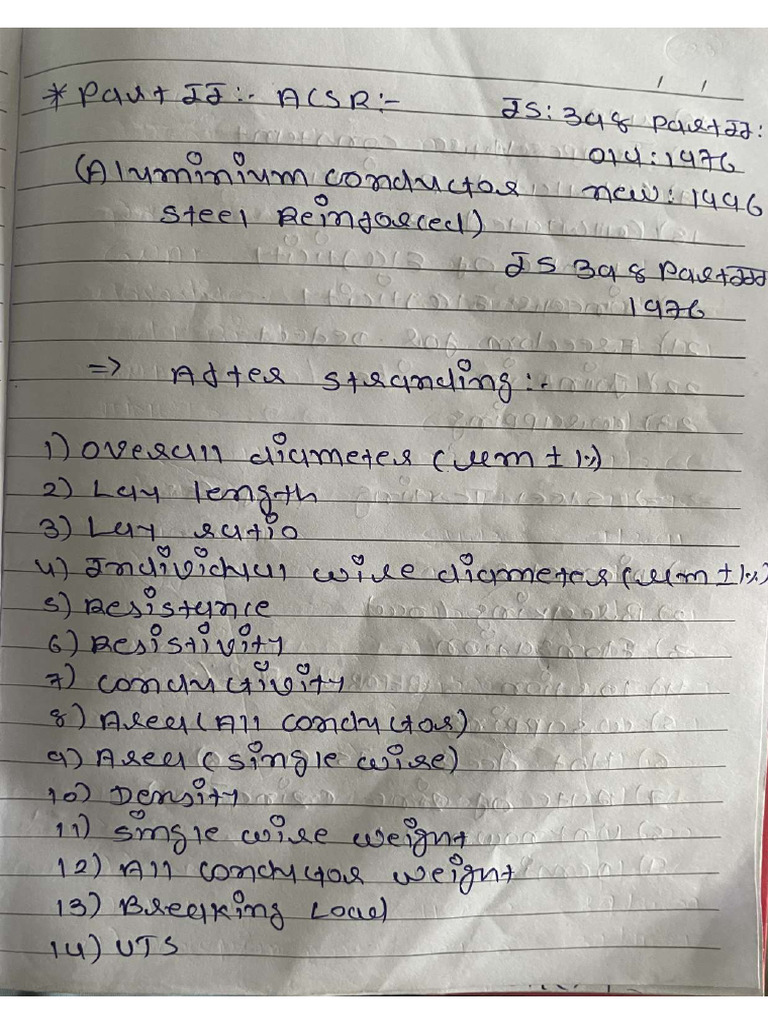 * Part II :- ACSR :- IS: 398 Part II:
old: 1976
(Aluminium conductor new: 1996
steel Reinforced)
IS 398 Part III
1976
=> After stranding :-
1) Overall diameter (mm ± 1%)
2) Lay length
3) Lay ratio
4) Individual wire diameter (mm ± 1%)
5) Resistance
6) Resistivity
7) Conductivity
8) Area (All conductor)
9) Area (single wire)
10) Density
11) Single wire weight
12) All conductor weight
13) Breaking Load
14) UTS